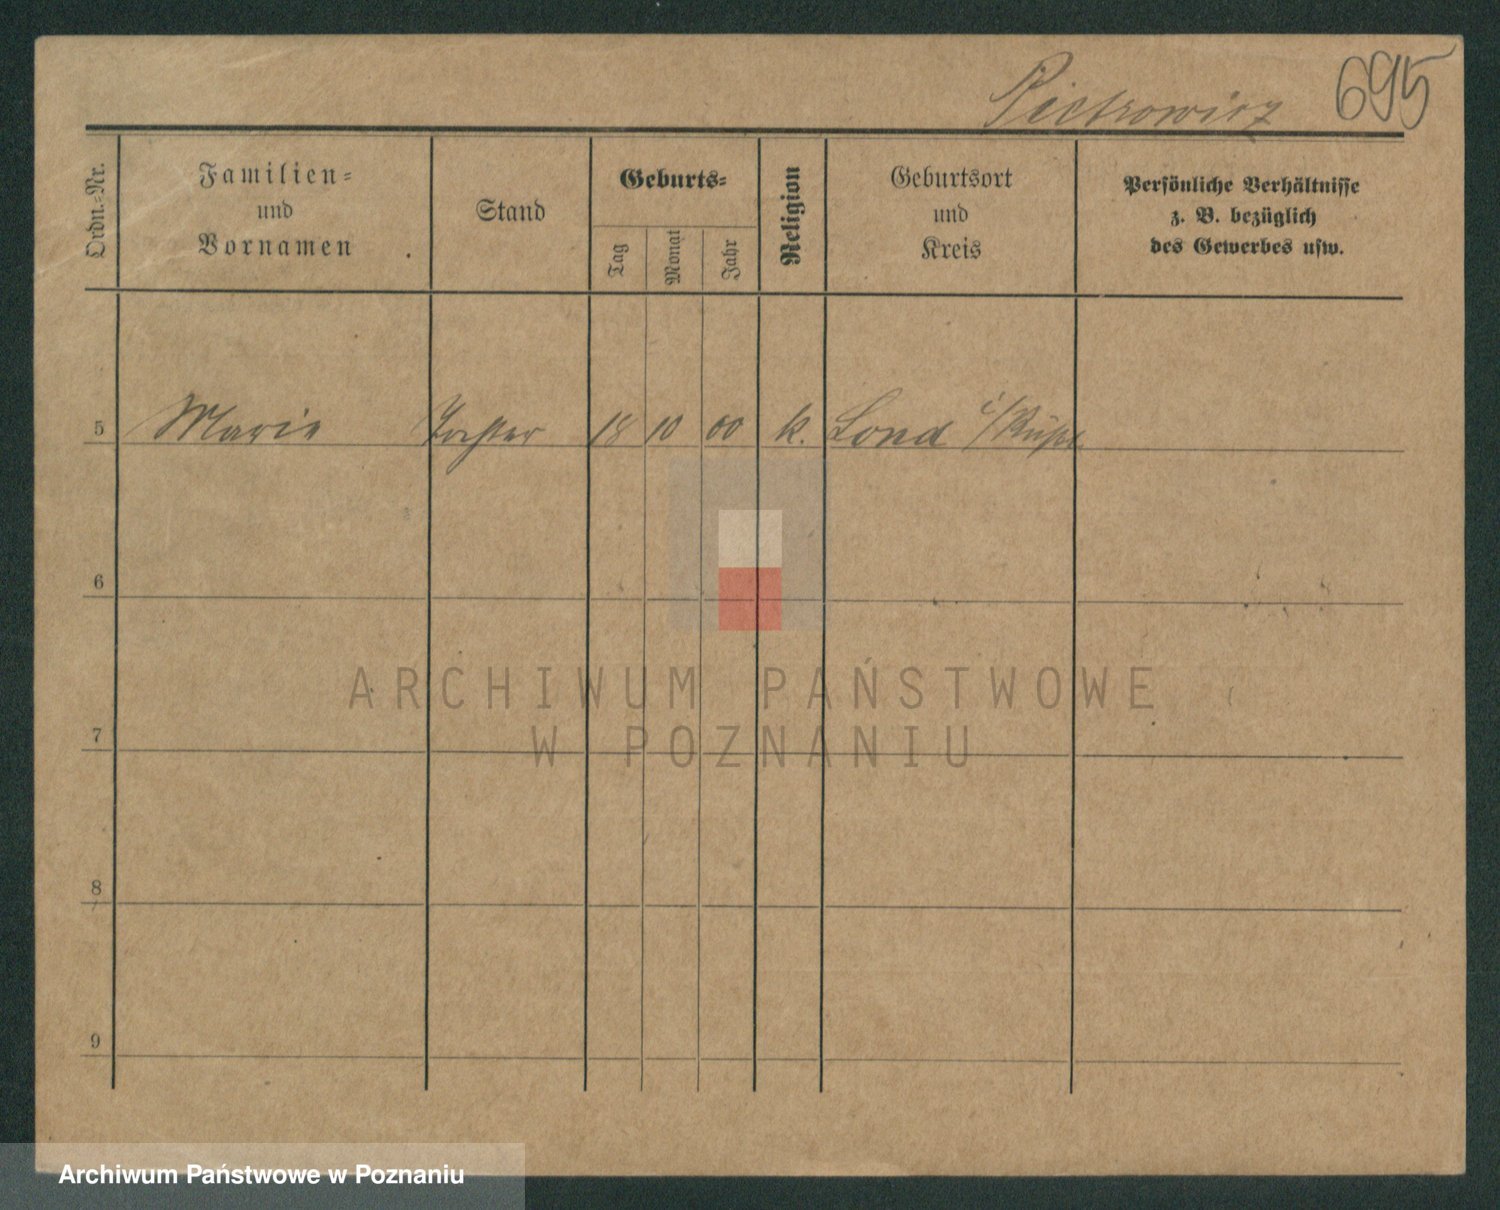 Pietrowicz 695
Ordn.-Nr.
Familien-
und
Vornamen
Stand
Geburts-
Tag
Monat
Jahr
Religion
Geburtsort
und
Kreis
Persönliche Verhältnisse
z. B. bezüglich
des Gewerbes usw.
5 Marie Tochter 18 10 00 k. Lond i/
6
7
8
9
ARCHIWUM PAŃSTWOWE
W POZNANIU
Archiwum Państwowe w Poznaniu